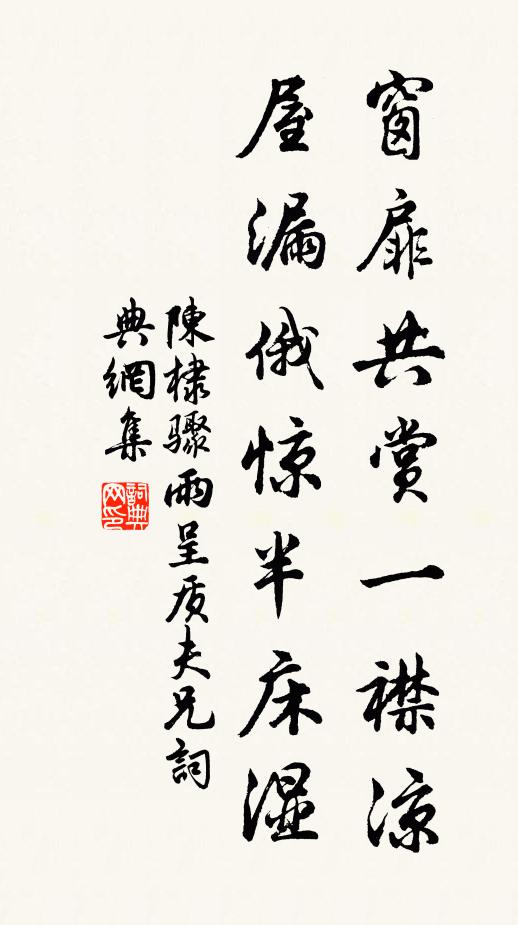 窗扉共赏一襟凉
屋漏俄惊半床湿
陳棣驟雨呈质夫兄詞
典網集
詞典
网印